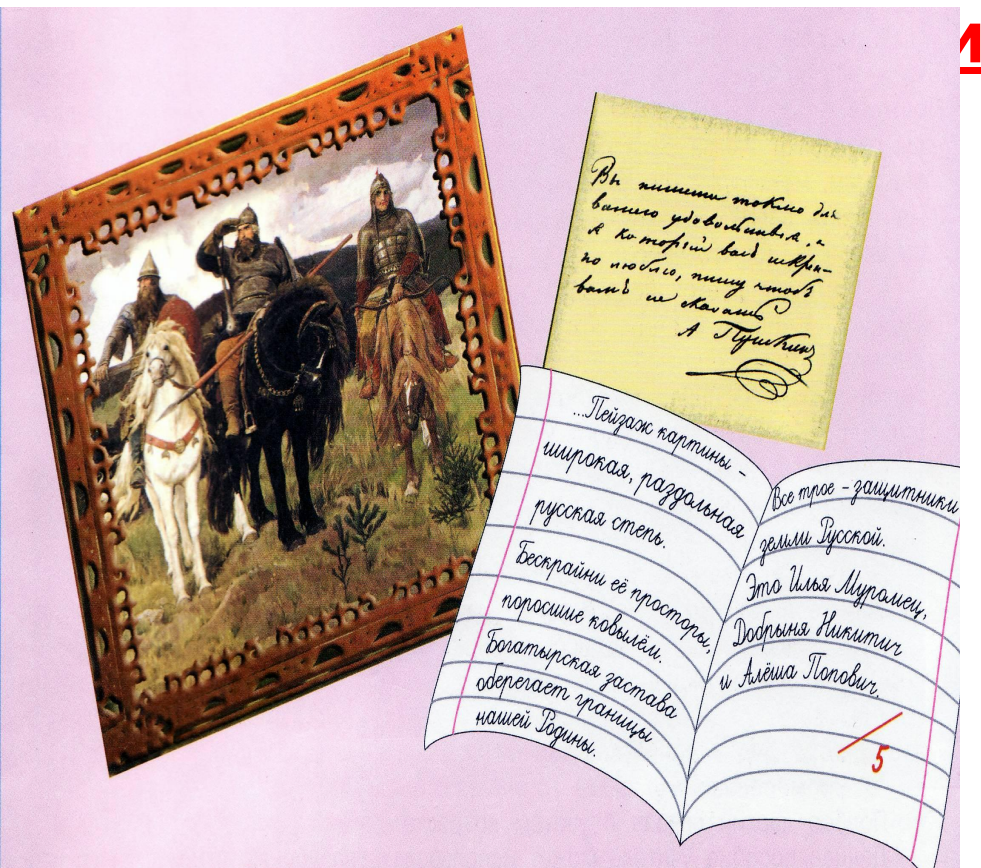 Вы пишете токмо для
вашего удовольствия, а
я который васъ искрен-
но люблю, пишу чтобъ
вамъ сие сказать
А Пушкинъ
...Пейзаж картины –
широкая, раздольная
русская степь.
Бескрайни её просторы,
поросшие ковылём.
Богатырская застава
оберегает границы
нашей Родины.
Все трое – защитники
земли Русской.
Это Илья Муромец,
Добрыня Никитич
и Алёша Попович.
5